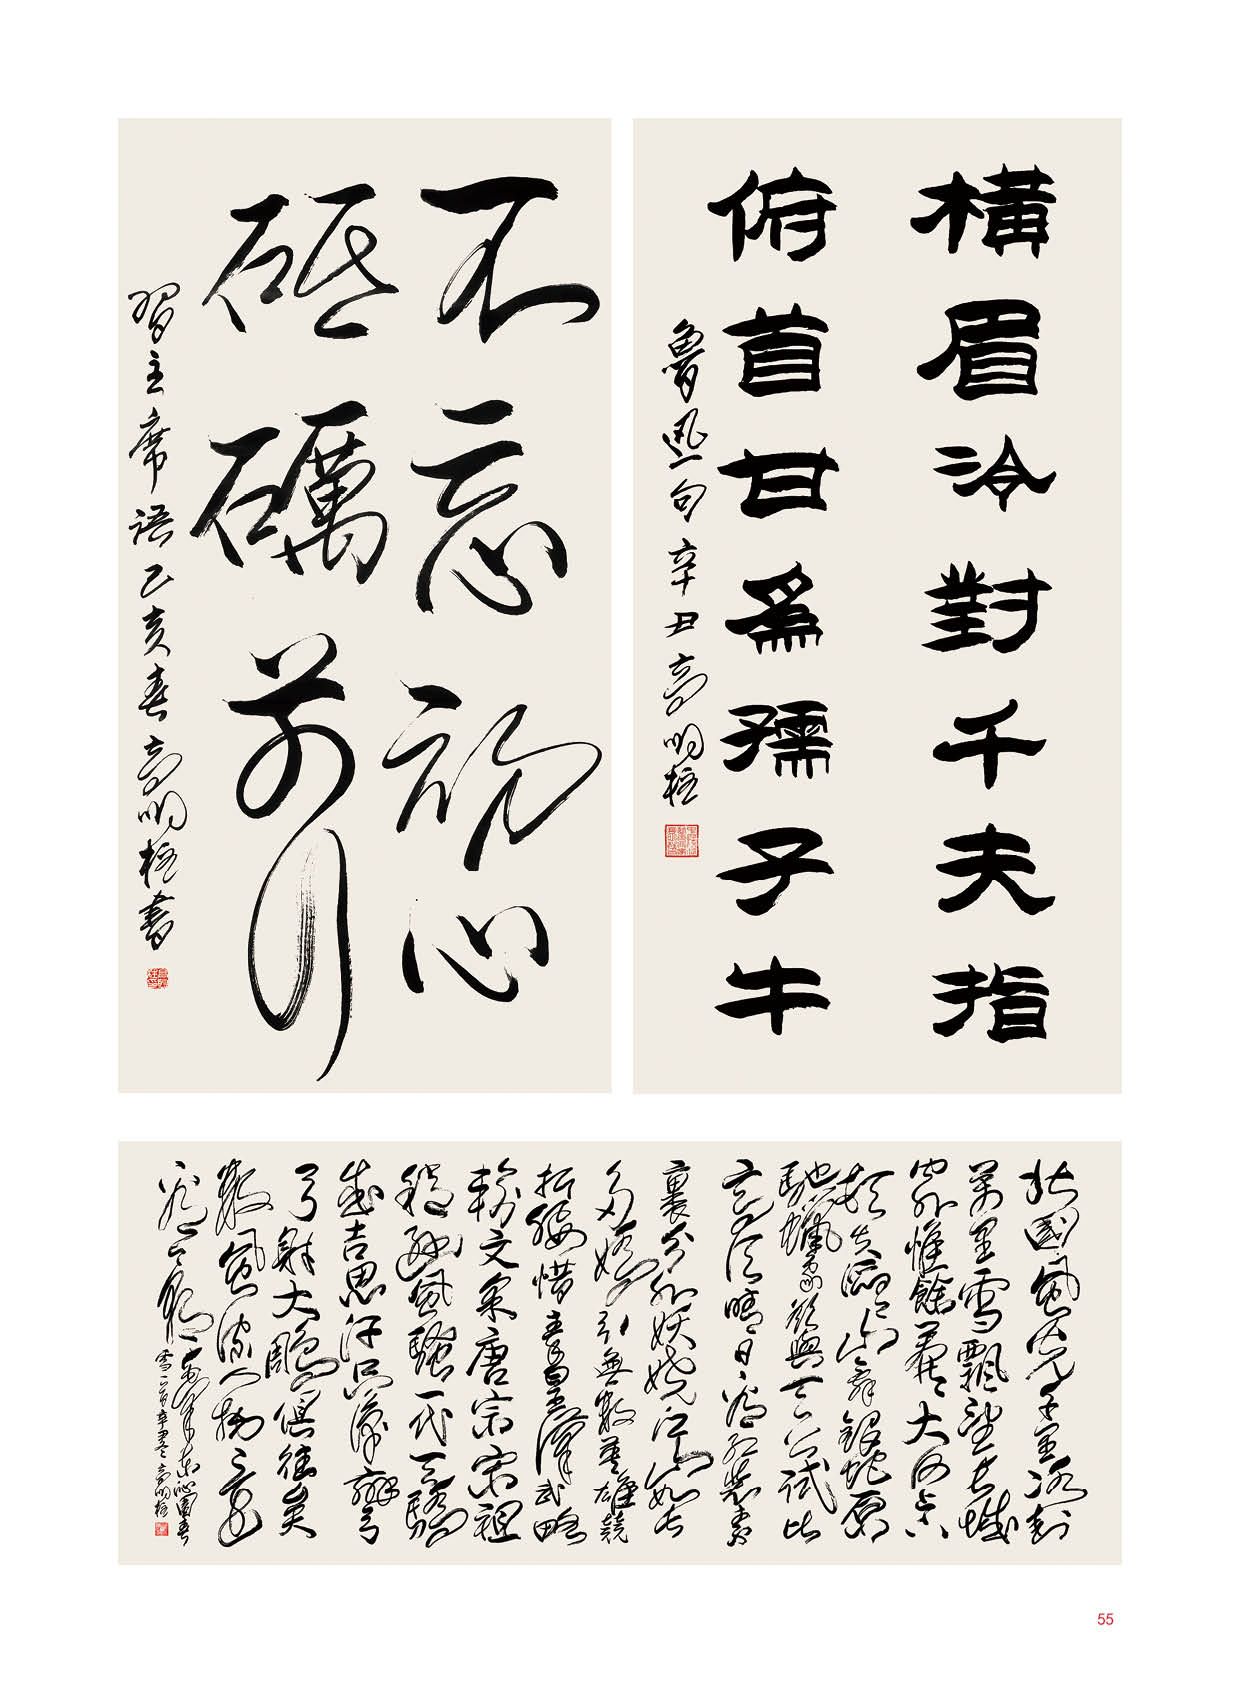 橫眉冷對千夫指
俯首甘為孺子牛
魯迅句辛丑高明柱
不忘初心
砥礪前行
習主席語己亥春高明柱書
北國風光千里冰封
萬里雪飄望長城
內外惟餘莽莽大河上下
頓失滔滔山舞銀蛇原
馳蠟象欲與天公試比
高須晴日看紅裝素
裹分外妖嬈江山如此
多嬌引無數英雄競
折腰惜秦皇漢武略
輸文采唐宗宋祖
稍遜風騷一代天驕
成吉思汗只識彎
弓射大雕俱往矣
數風流人物還
看今朝毛澤東沁園春
雪一首辛丑高明柱
55